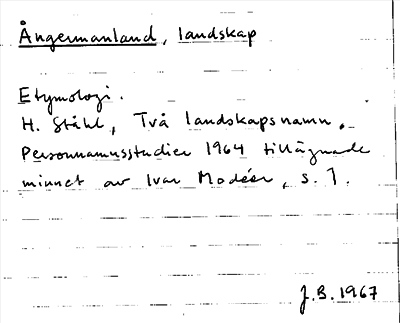 Ångermanland, landskap
Etymologi.
H. Ståhl, Två landskapsnamn.
Personnamnsstudier 1964 tillägnade
minnet av Ivar Modéer, s. 7.
J.B. 1967